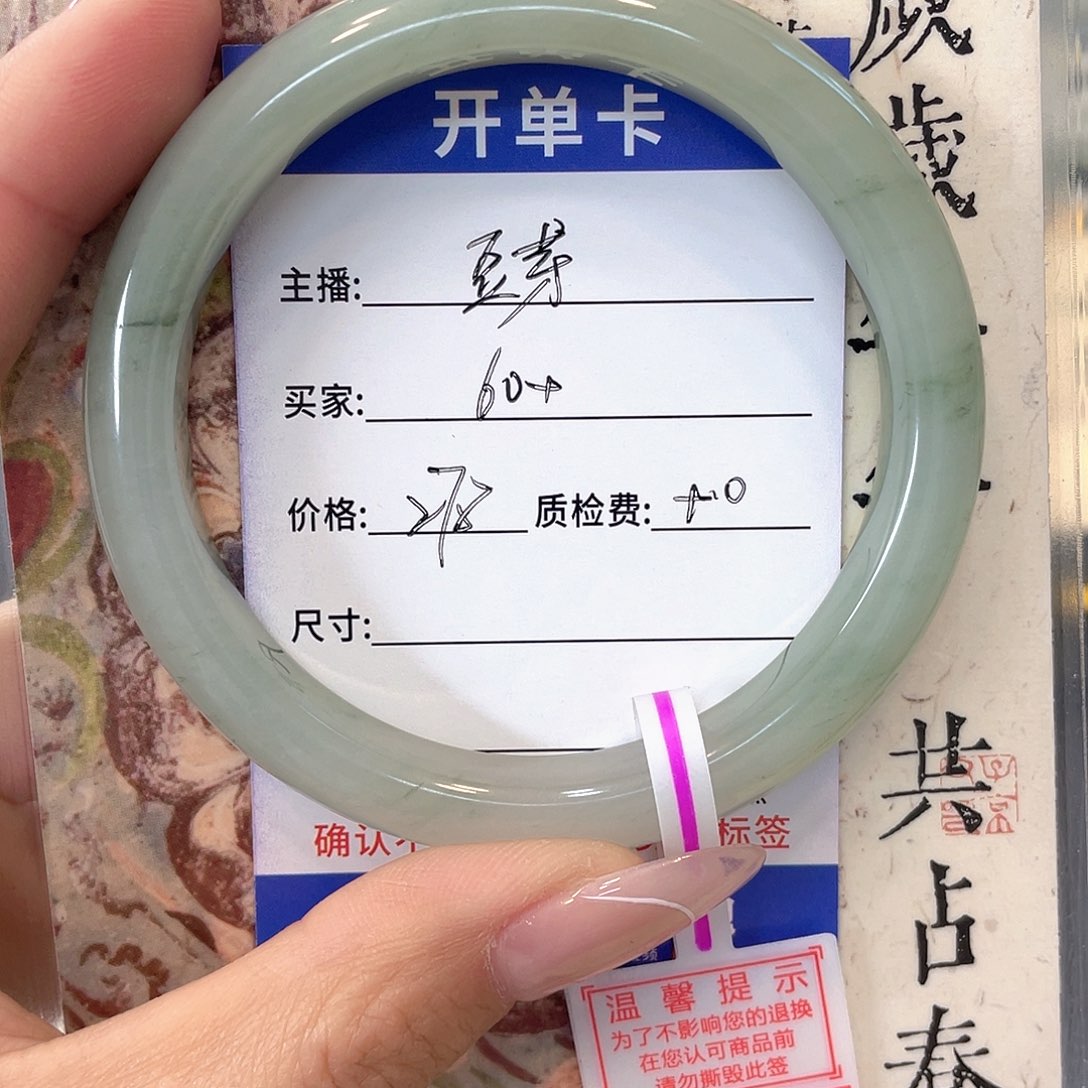 开单卡
主播: 豆芽
买家: 60+
价格: 质检费: +10
尺寸:
确认不
标签
温馨提示
为了不影响您的退换
在您认可商品前
请勿撕毁此签
歲
共
占
春